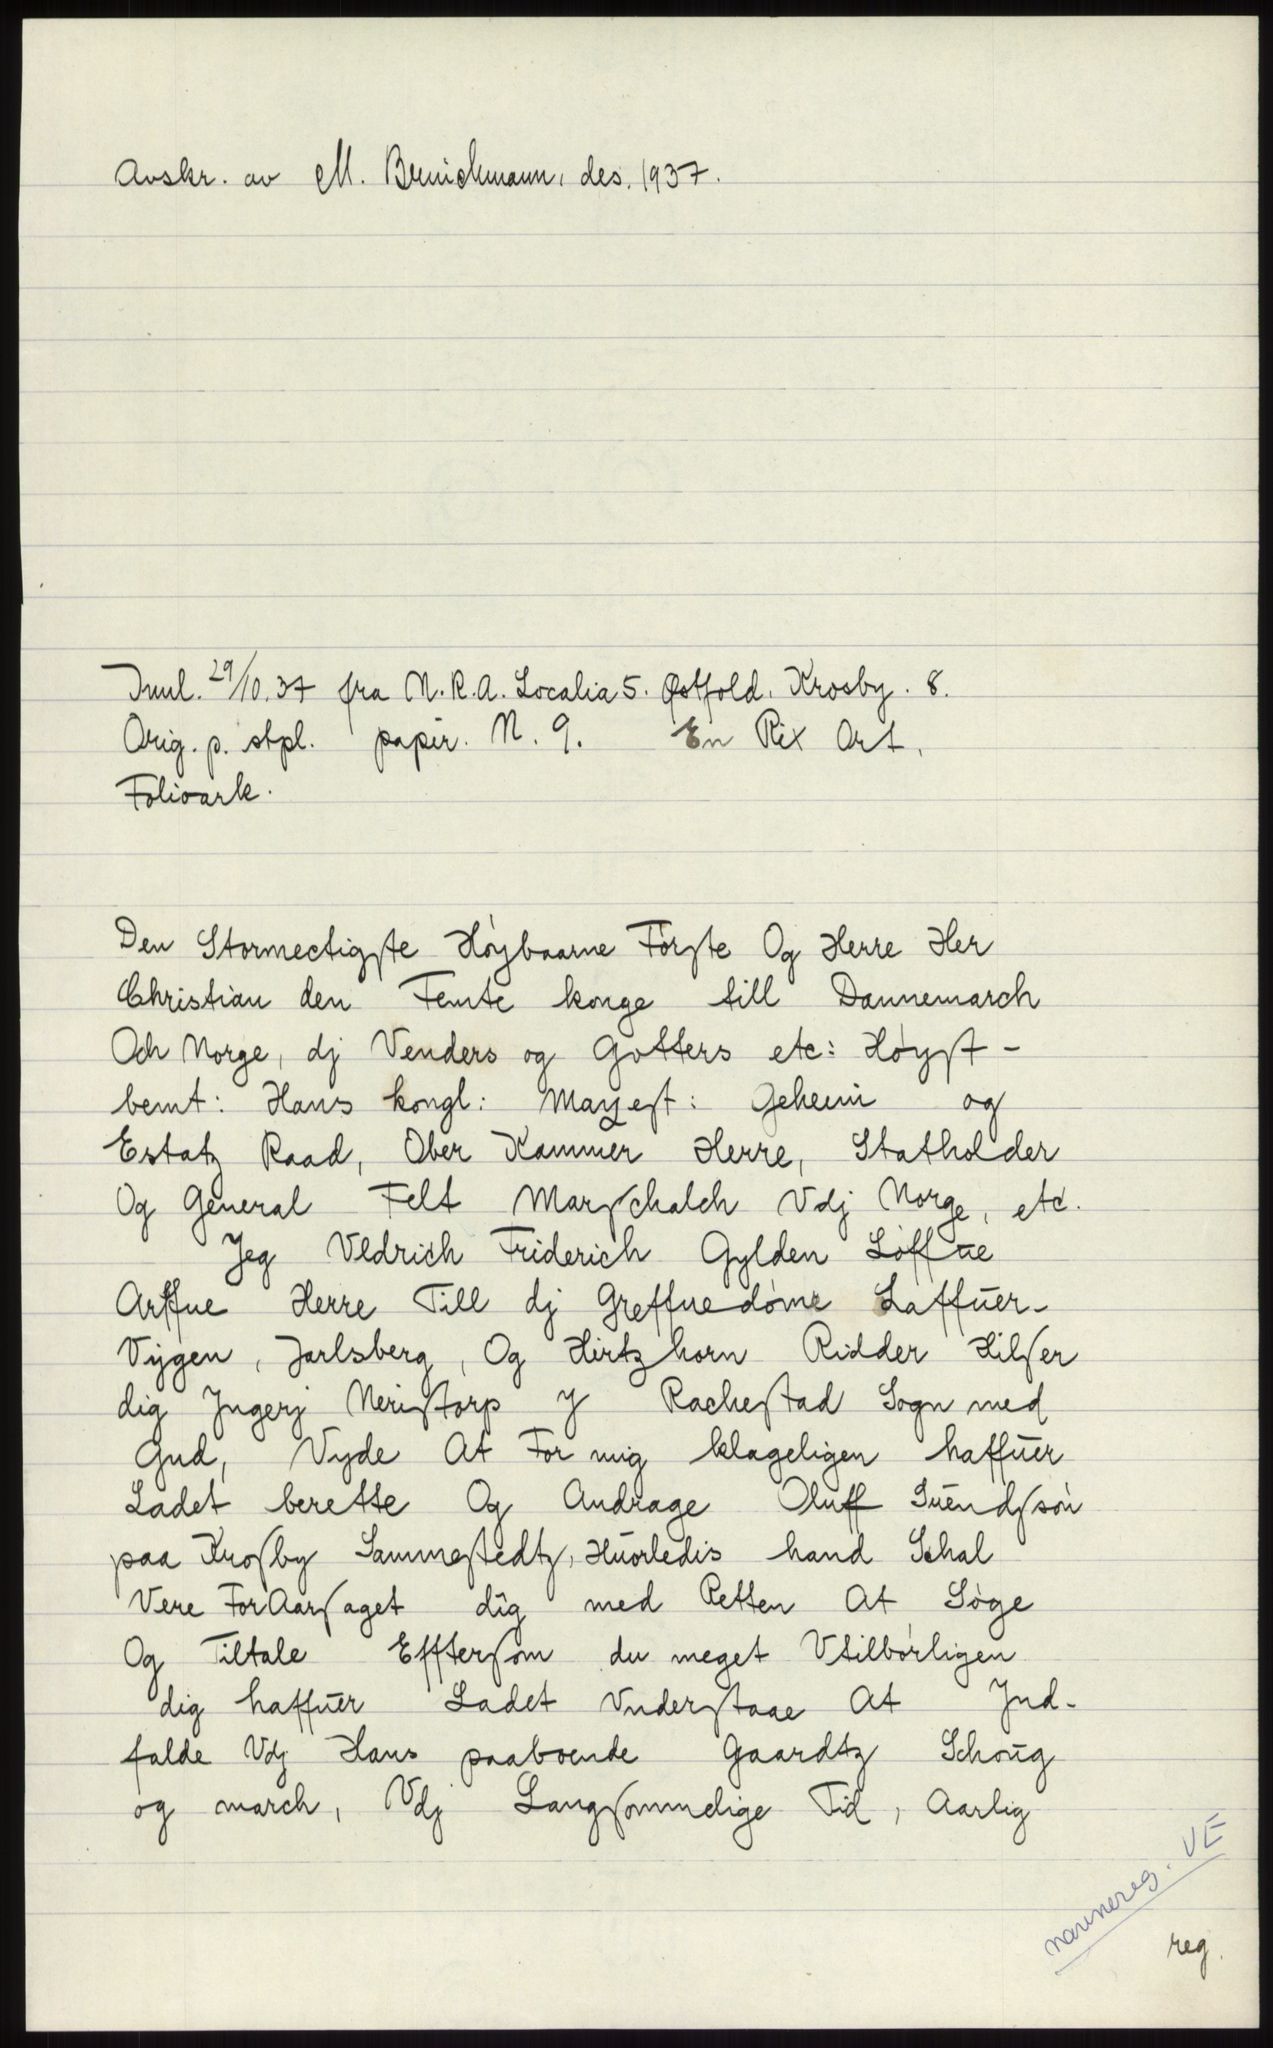 Avskr. av M. Brinickmann, des. 1937.
Innl. 29/10.37 fra N.R.A. Localia 5. Østfold. Krosby. 8.
Orig. p. stpl. papir. N. 9. En Rix Ort.
Folioark.
Den Stormectigste Høybaarne Første Og Herre Her
Christian den Femte konge till Dannemarch
Och Norge, dj Venders og Gotters etc: Høyst-
bemt: Hans kongl: Mayest: Geheim og
Estatz Raad, Ober Kammer Herre, Statholder
Og General Felt Marschalch Vdj Norge, etc.
Jeg Vldrich Friderich Gylden Løffue
Arffue Herre Till dj Greffuedøme Laffuer-
Vijgen, Jarlsberg, Og Hirtzhorn Ridder Hilser
dig Jngerj Neristorp J Rachestad Sogn med
Gud, Vyde At For mig klageligen haffuer
Ladet berette Og Andrage Oluff Suendsøn
paa Krosby Sammestedtz, Huorledis hand Schal
Vere ForAarsaget dig med Retten At Søge
Og Tiltale Efftersom du meget Vtilbørligen
dig haffuer Ladet Vnderstaae At Jnd-
falde Vdj Hans paaboende Gaardtz Schoug
og march, Vdj Langsommelige Tid, Aarlig
navnereg. VE
reg.